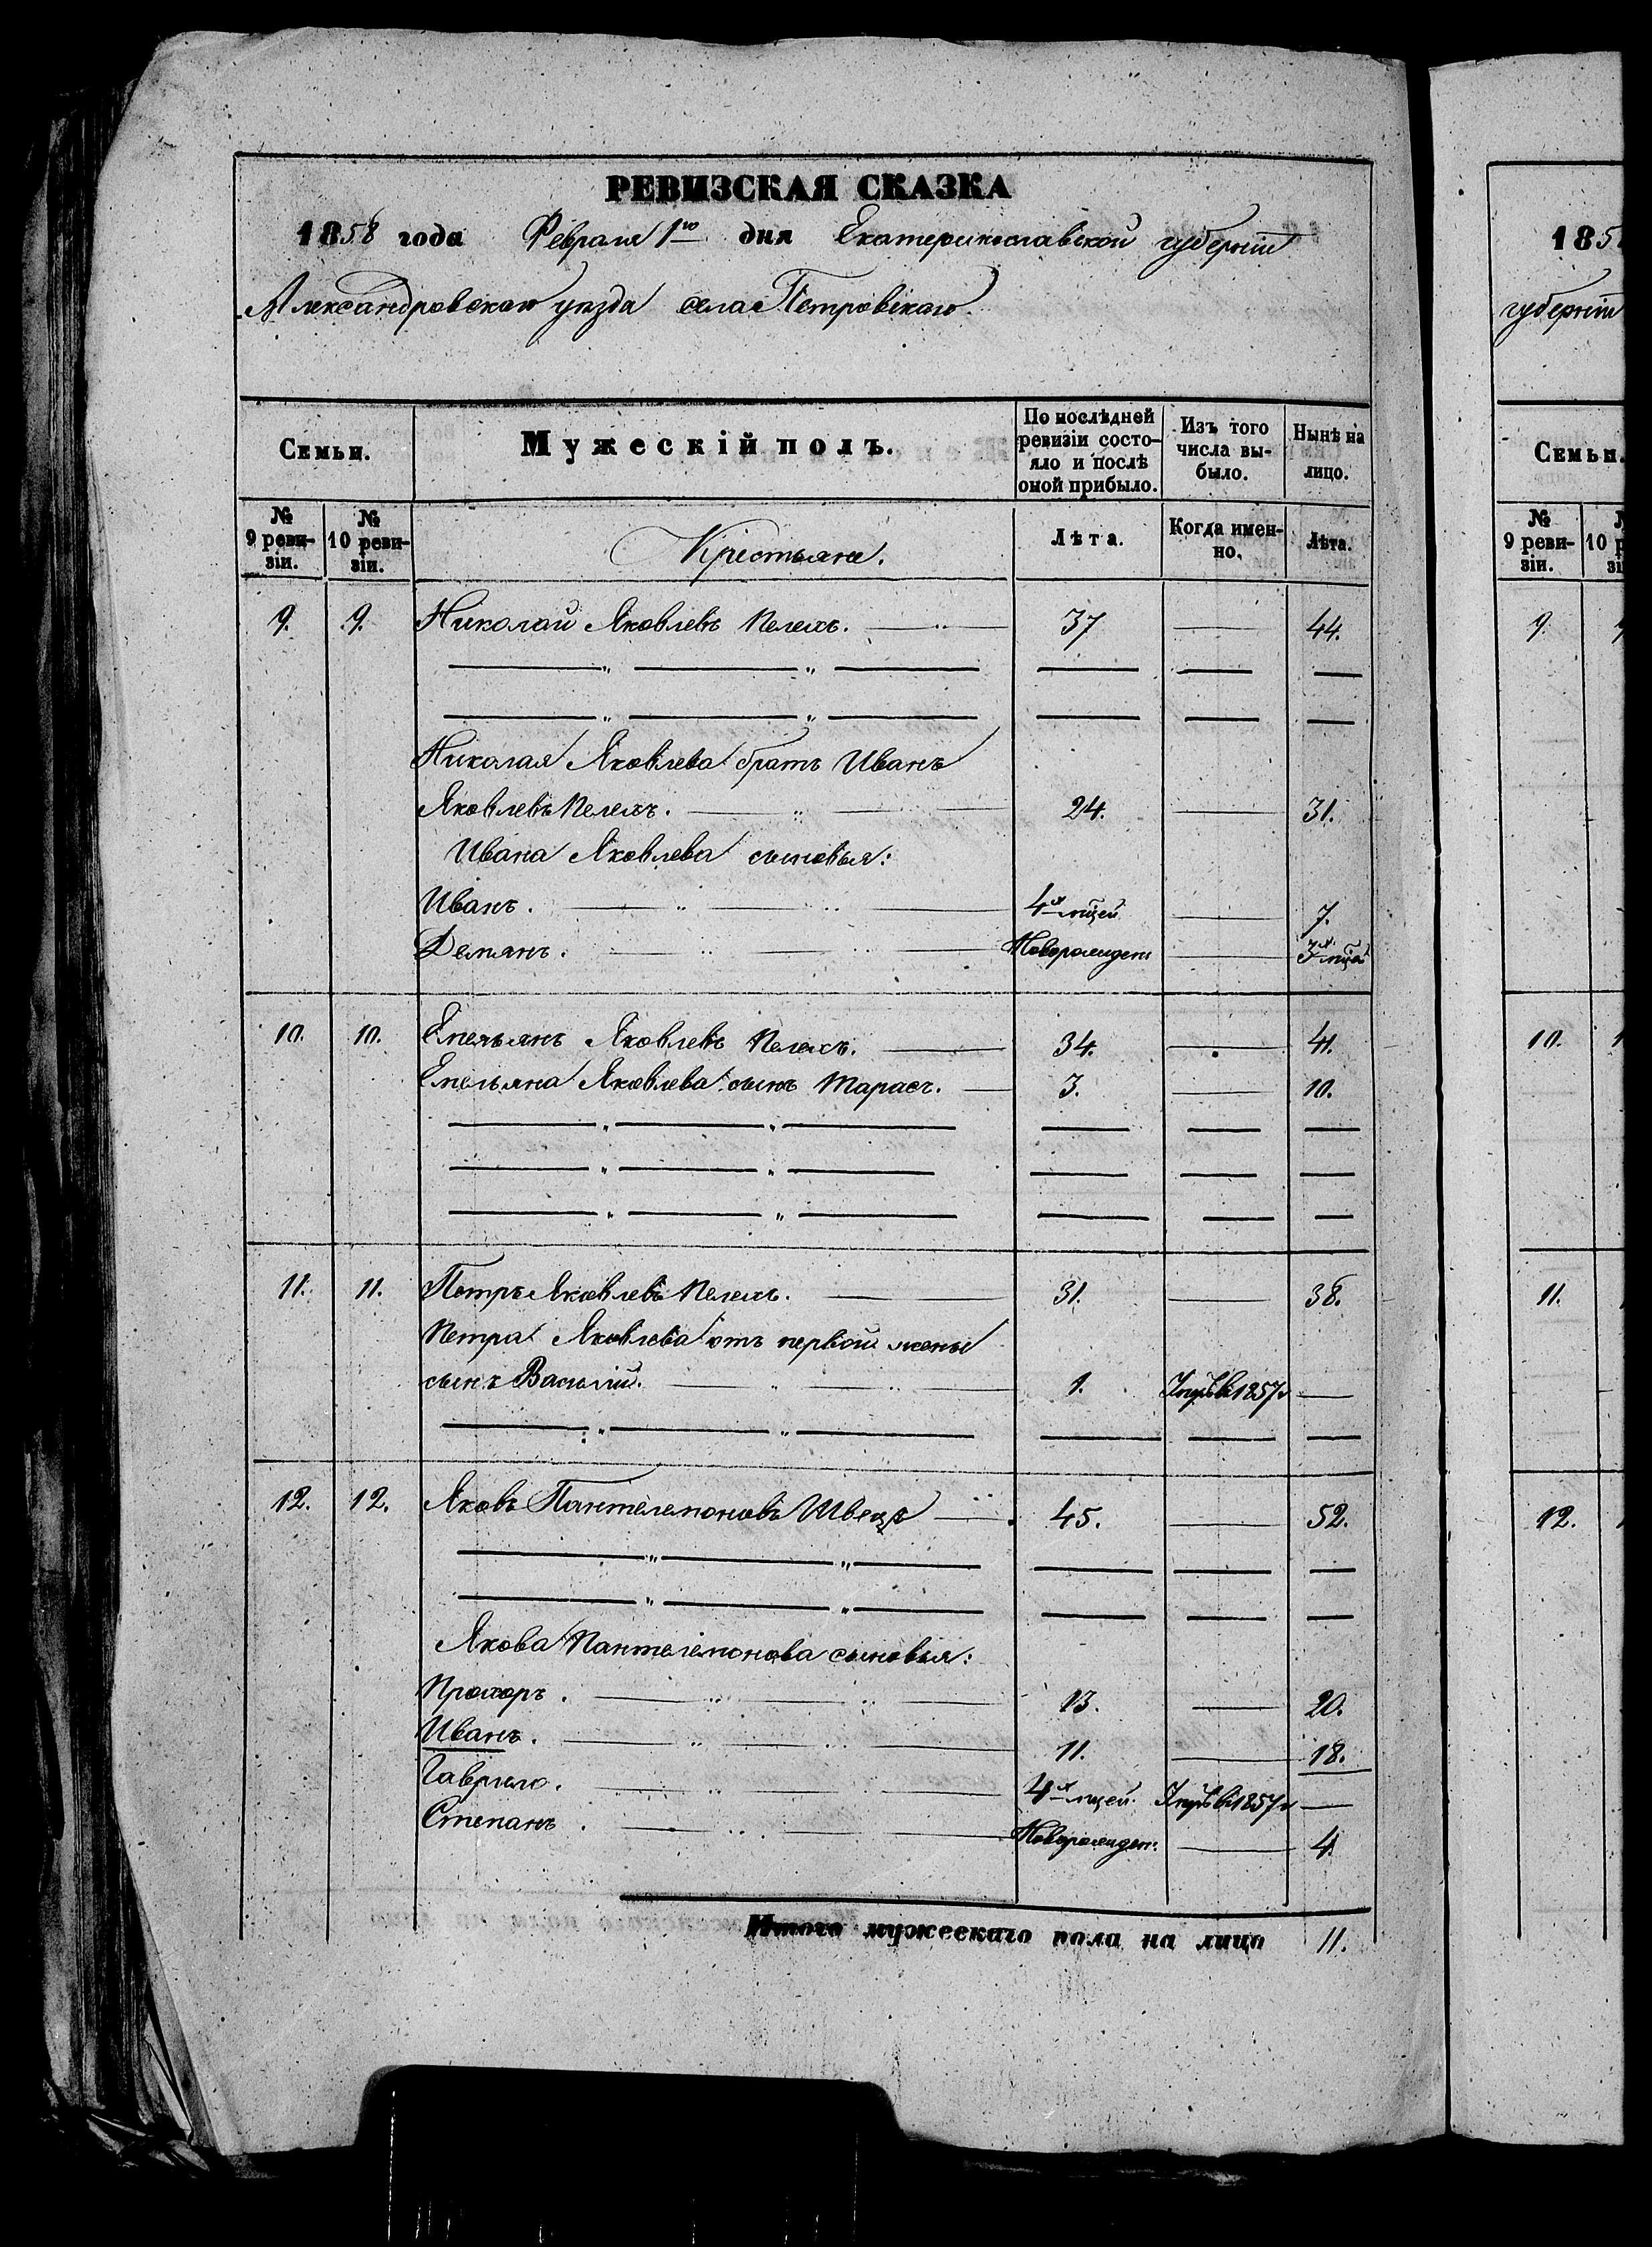 РЕВИЗСКАЯ СКАЗКА
1858 года Февраля 1го дня Екатеринославской губерніи
Александровскаго уѣзда села Петровскаго.
Семьи.
Мужескій полъ.
По послѣдней ревизіи состо-
яло и послѣ
оной прибыло.
Изъ того
числа вы-
было.
Нынѣ на
лицо.
№
9 реви-
зіи.
№
10 реви-
зіи.
Крестьяне.
Лѣта.
Когда имен-
но.
Лѣта.
9. 9. Николай Яковлевъ Пелехъ. 37 44.
Николая Яковлева братъ Иванъ
Яковлевъ Пелехъ. 24. 31.
Ивана Яковлева сыновья:
Иванъ. 4х мцей 7.
Демянъ. Новорожден 3х мца
10. 10. Емельянъ Яковлевъ Пелехъ. 34. 41.
Емельяна Яковлева сынъ Тарасъ. 3. 10.
11. 11. Петръ Яковлевъ Пелехъ. 31. 38.
Петра Яковлева отъ первой жены
сынъ Василій. 1. Умръ въ 1857 г
12. 12. Яковъ Пантелемоновъ Швецъ 45. 52.
Якова Пантелемонова сыновья:
Прохоръ. 13. 20.
Иванъ. 11. 18.
Гаврило. 4х мцей. Умръ въ 1857 г
Степанъ. Новорожден: 4.
Итого мужескаго пола на лицо 11.
185
губерніи
Семьи.
№
9 реви-
зіи.
10 р
зі
9.
10.
11.
12.